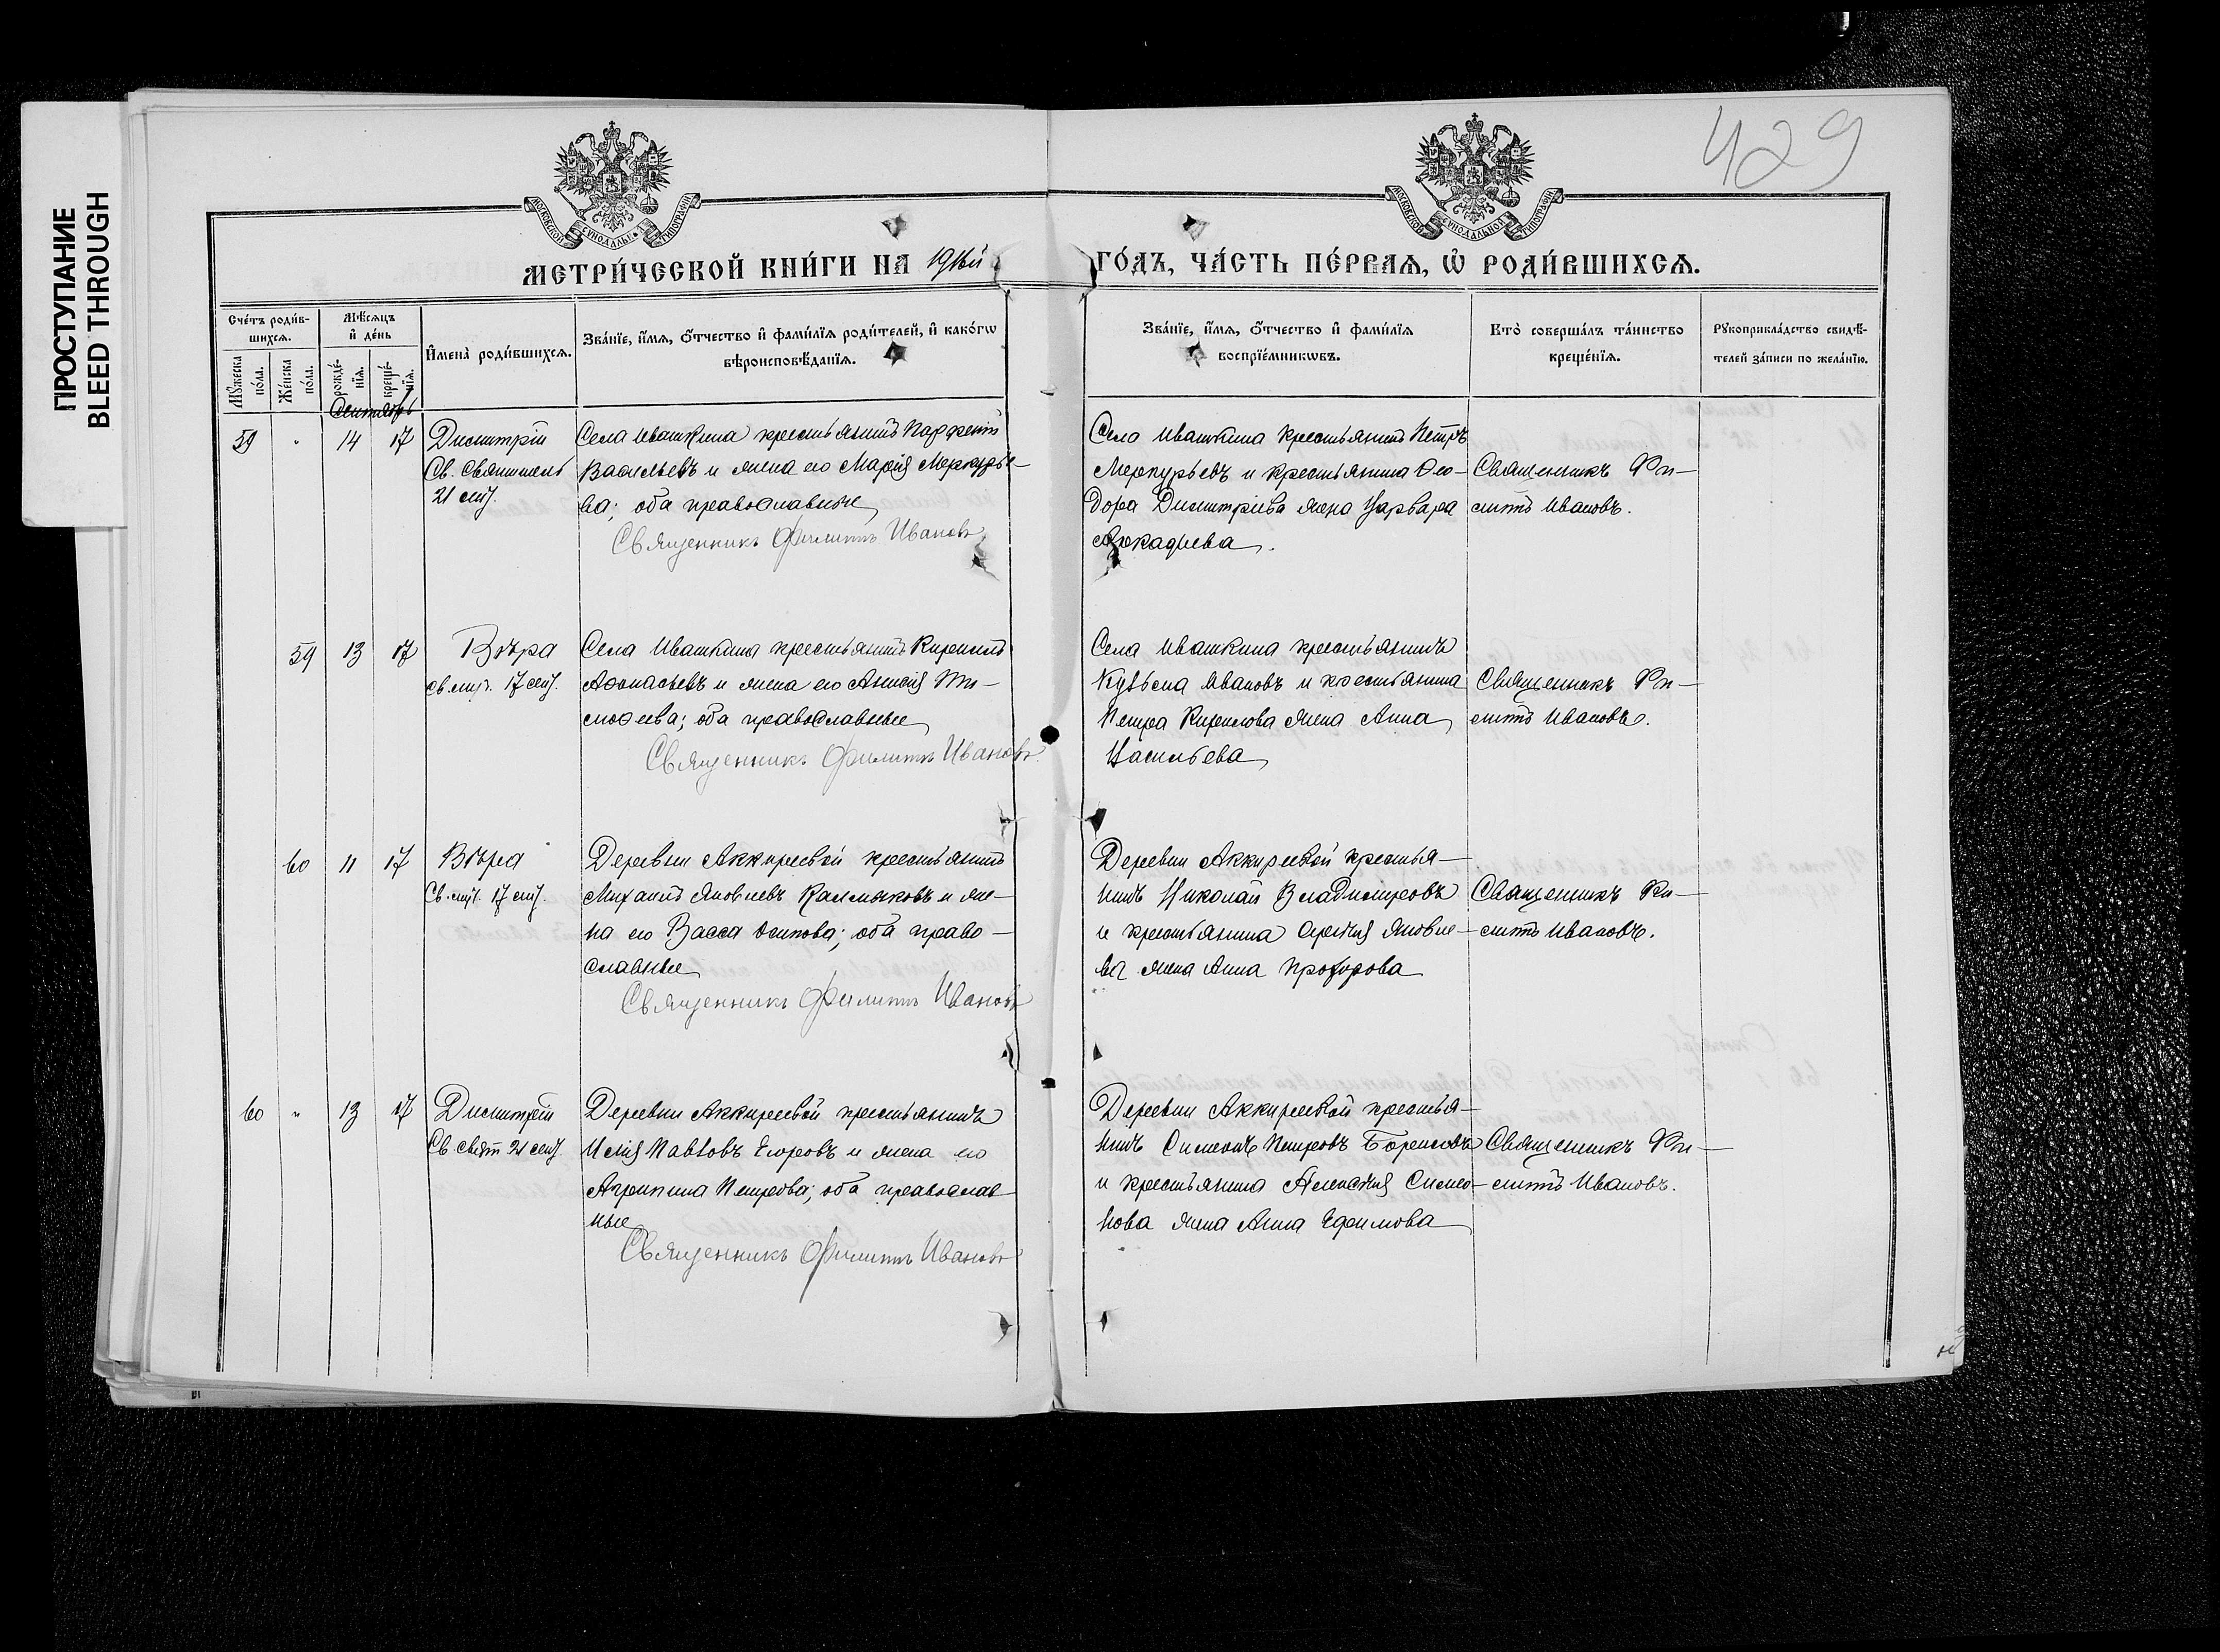 ПРОСТУПАНИЕ
BLEED THROUGH
429
МОСКОВСКОЙ СѴНОДАЛЬНОЙ ТИПОГРАФІИ
МОСКОВСКОЙ СѴНОДАЛЬНОЙ ТИПОГРАФІИ
МЕТРИ́ЧЕСКОЙ КНИ́ГИ НА
ГО́ДЪ, ЧА́СТЬ ПЕ́РВАЯ, Ѡ РОДИ́ВШИХСЯ.
Сче́тъ роди́в-
шихся.
Мѣ́сяцъ
и҆ де́нь
Мꙋ́жеска по́ла.
Же́нска по́ла.
рожде́-нїя.
креще́-нїя.
И҆мена̀ роди́вшихся.
Зва́нїе, и҆́мя, ѻ҆́тчество и҆ фами́лїя роди́телей, и҆ како́гѡ
вѣроисповѣ́данїя.
Зва́нїе, и҆́мя, ѻ҆́тчество и҆ фами́лїя
воспрїе́мникѡвъ.
Кто̀ соверша́лъ та́инство
креще́нїя.
Рꙋкоприкла́дство свидѣ́-
телей за́писи по жела́нїю.
Сентябрь
59 " 14 17 Димитрій
Св. Святитель
21 сент.
Села Ивашкина крестьянинъ Парфеній
Васильевъ и жена его Марія Меркурье-
ва; оба православные
Священникъ Филиппъ Ивановъ
Села Ивашкина крестьянинъ Петръ
Меркурьевъ и крестьянина Ѳео-
дора Димитріева жена Варвара
Аркадіева.
Священникъ Фи-
липпъ Ивановъ.
59 13 17 Вѣра
Св. муч. 17 сент.
Села Ивашкина крестьянинъ Кириллъ
Аѳанасьевъ и жена его Анисія Ти-
моѳеева; оба православные
Священникъ Филиппъ Ивановъ
Села Ивашкина крестьянинъ
Кузьма Ивановъ и крестьянина
Петра Кириллова жена Анна
Васильева
Священникъ Фи-
липпъ Ивановъ.
60 11 17 Вѣра
Св. муч. 17 сент.
Деревни Аккиреевой крестьянинъ
Михаилъ Яковлевъ Калмыковъ и же-
на его Васса Осипова; оба право-
славные
Священникъ Филиппъ Ивановъ
Деревни Аккиреевой крестья-
нинъ Николай Владимировъ
и крестьянина Сергія Яковле-
ва жена Анна Прохорова
Священникъ Фи-
липпъ Ивановъ.
60 " 13 17 Димитрій
Св. Свят. 21 сент.
Деревни Аккиреевой крестьянинъ
Илія Павловъ Егоровъ и жена его
Агрипина Петрова; оба православ-
ные
Священникъ Филиппъ Ивановъ
Деревни Аккиреевой крестья-
нинъ Симеонъ Петровъ Борисовъ
и крестьянина Алексія Симео-
нова жена Анна Ефимова
Священникъ Фи-
липпъ Ивановъ.